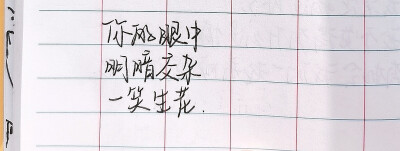 你的眼中
明暗交杂
一笑生花.